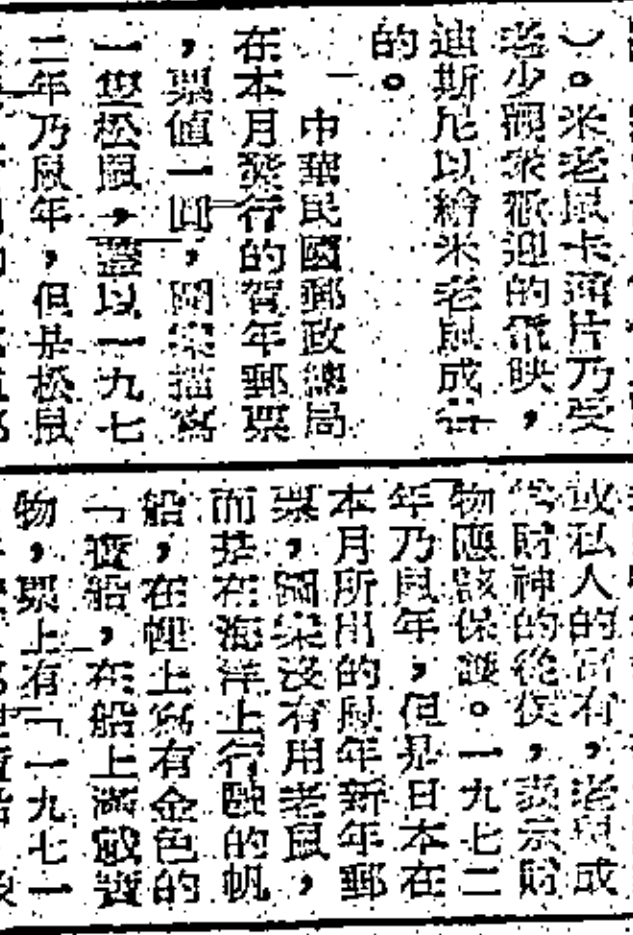 ）。米老鼠卡通片乃受
老少觀衆歡迎的電映，
迪斯尼以繪米老鼠成名
的。
中華民國郵政總局
在本月發行的賀年郵票
，票值一圓，圖案描寫
一對松鼠，蓋以一九七
二年乃鼠年，但是松鼠
或私人的所有，老鼠成
爲財神的後侯，表示財
物應該保護。一九七二
年乃鼠年，但是日本在
本月所出的鼠年新年郵
票，圖案沒有用老鼠，
而是在海洋上行駛的帆
船，在帆上寫有金色的
「寶船，在船上滿載寶
物，票上有「一九七一